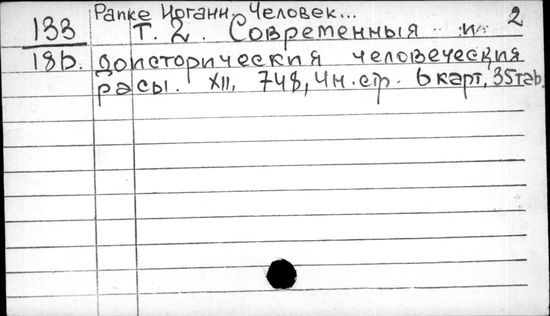 Ранке Иоганн. Человек... 2
133 Т. 2. Современныя и
18b. доисторическия человеческия
расы. XII, 748, 4н.стр. 6 карт, 35таб.